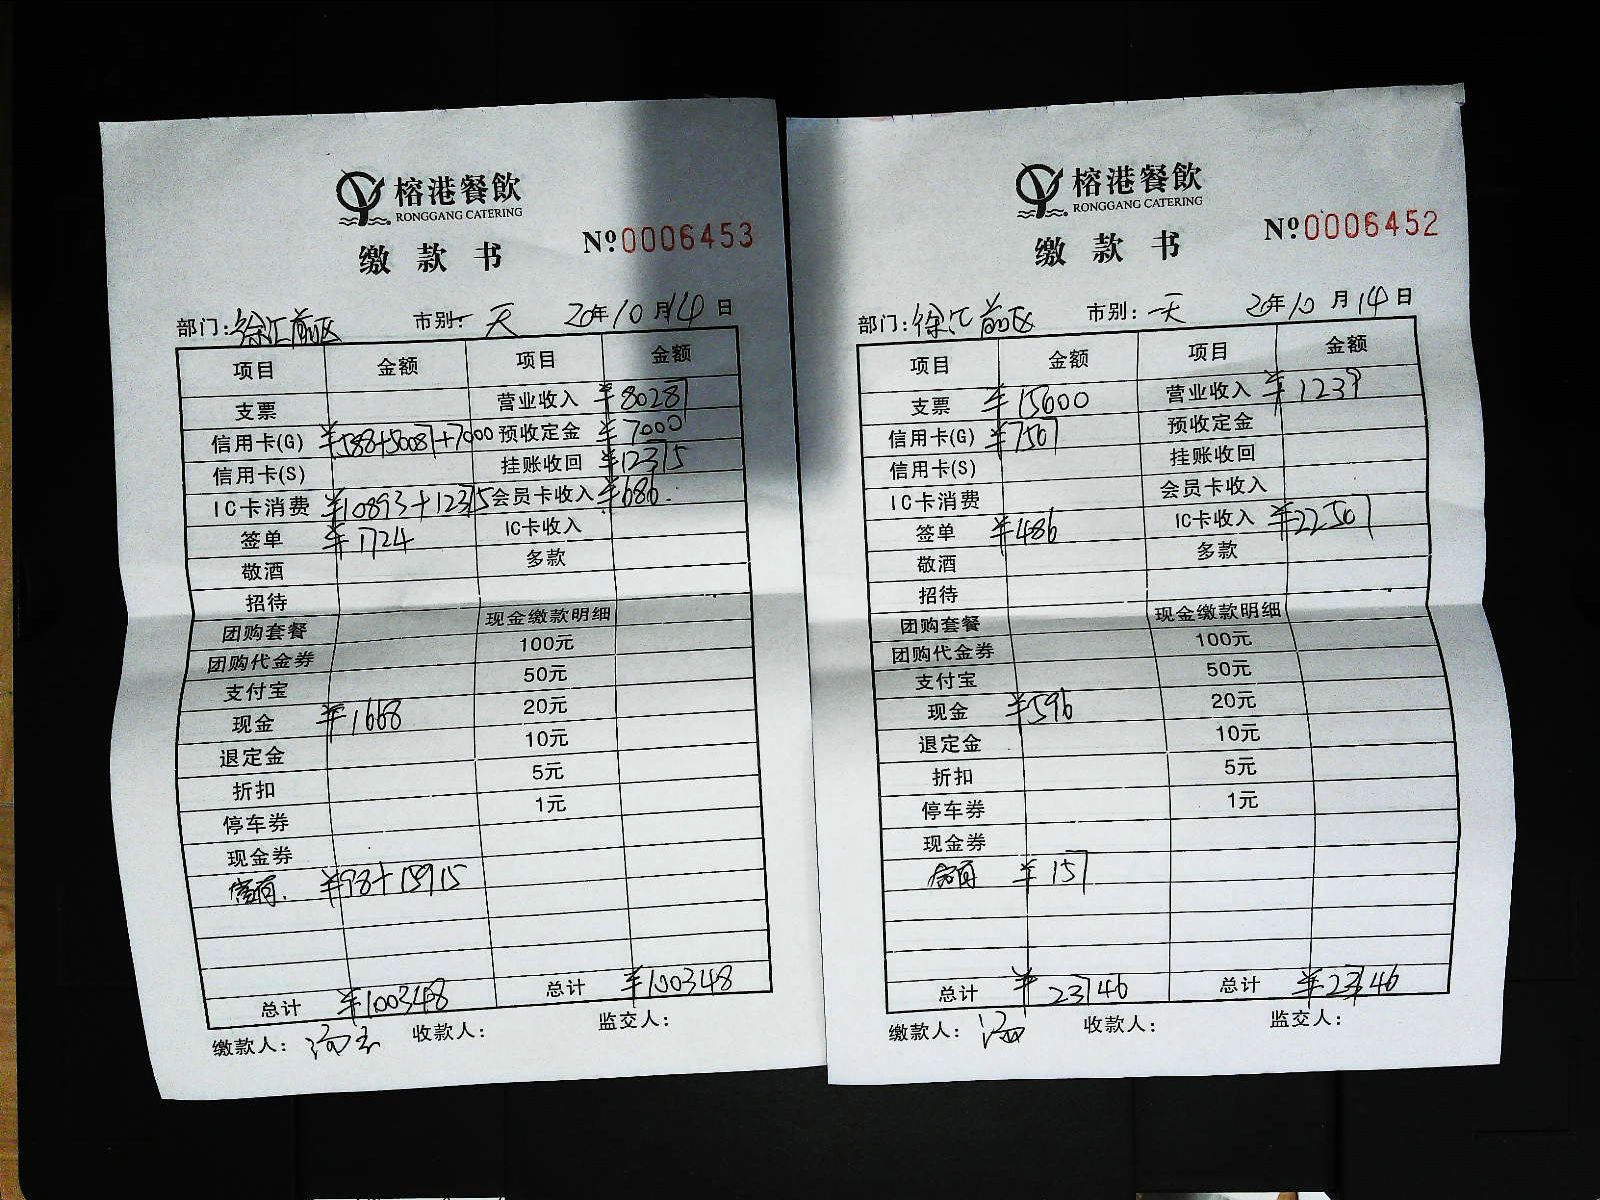 榕港餐飲
RONGGANG CATERING
缴款书
Nº0006453
部门:徐汇前区 市别: 天 20年10月14日
项目 金额 项目 金额
支票 营业收入 ¥80287
信用卡(G) ¥588+50087+7000 预收定金 ¥7000
信用卡(S) 挂账收回 ¥12375
IC卡消费 ¥10893+12375 会员卡收入 ¥686
签单 ¥1724 IC卡收入
敬酒 多款
招待
团购套餐 现金缴款明细
团购代金券 100元
支付宝 50元
现金 ¥1668 20元
退定金 10元
折扣 5元
停车券 1元
现金券
¥98+15915
总计 ¥100348 总计 ¥100348
缴款人: 收款人: 监交人:
榕港餐飲
RONGGANG CATERING
缴款书
Nº0006452
部门:徐汇前区 市别: 天 20年10月14日
项目 金额 项目 金额
支票 ¥15000 营业收入 ¥1239
信用卡(G) ¥7507 预收定金
信用卡(S) 挂账收回
IC卡消费 会员卡收入
签单 ¥486 IC卡收入 ¥22507
敬酒 多款
招待
团购套餐 现金缴款明细
团购代金券 100元
支付宝 50元
现金 ¥596 20元
退定金 10元
折扣 5元
停车券 1元
现金券
¥157
总计 ¥23746 总计 ¥23746
缴款人: 收款人: 监交人: